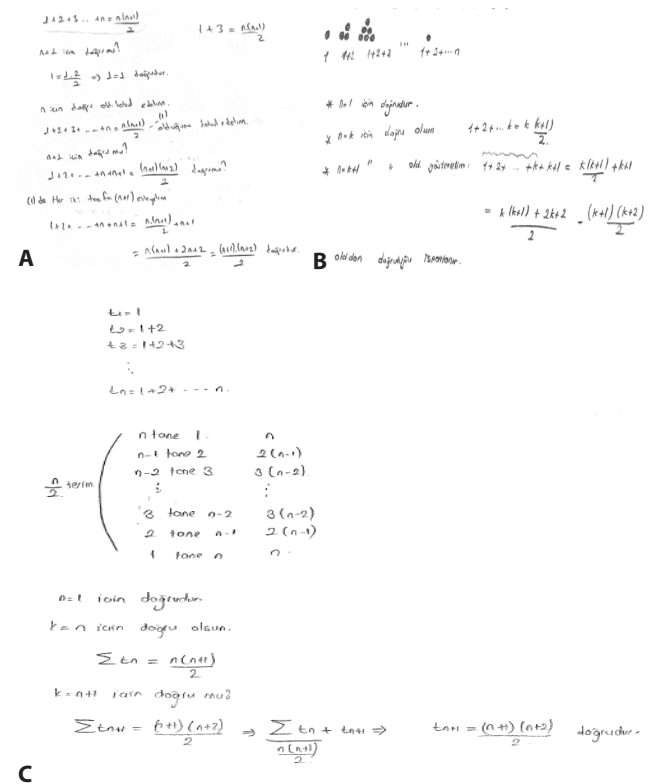 1+2+3+...+n = n.(n+1)/2
1+3 = n(n+1)/2
n=1 için doğru mu?
1 = 1.2/2 => 1=1 doğrudur.
n için doğru old. kabul edelim.
1+2+3+ - - - +n = n(n+1)/2 (1) olduğunu kabul edelim.
n+1 için doğru mu?
1+2+ - - - +n+n+1 = (n+1)(n+2)/2 doğru mu?
(1) de Her iki tarafa (n+1) ekleyelim
1+2+ - - - +n+n+1 = n(n+1)/2 + n+1
= n(n+1)+2n+2/2 = (n+1).(n+2)/2 doğrudur.
A
1 1+2 1+2+3 ... 1+2+...n
* n=1 için doğrudur.
* n=k için doğru olsun 1+2+...k = k(k+1)/2.
* n=k+1 " " old. gösterelim: 1+2+ ... +k+k+1 = k(k+1)/2 + k+1
= k(k+1)+2k+2/2 = (k+1)(k+2)/2
B
old.dan doğruluğu ispatlanır.
t1=1
t2=1+2
t3=1+2+3
⋮
tn=1+2+ - - - - n.
n tane 1. n
n-1 tane 2 2(n-1)
n-2 tane 3 3(n-2)
n/2 terim ⋮ ⋮
3 tane n-2 3(n-2)
2 tane n-1 2(n-1)
1 tane n n.
n=1 için doğrudur.
k=n için doğru olsun.
∑tn = n(n+1)/2
k=n+1 için doğru mu?
∑tn+1 = (n+1)(n+2)/2 => ∑tn + tn+1 => tn+1 = (n+1)(n+2)/2 doğrudur.
n(n+1)/2
C